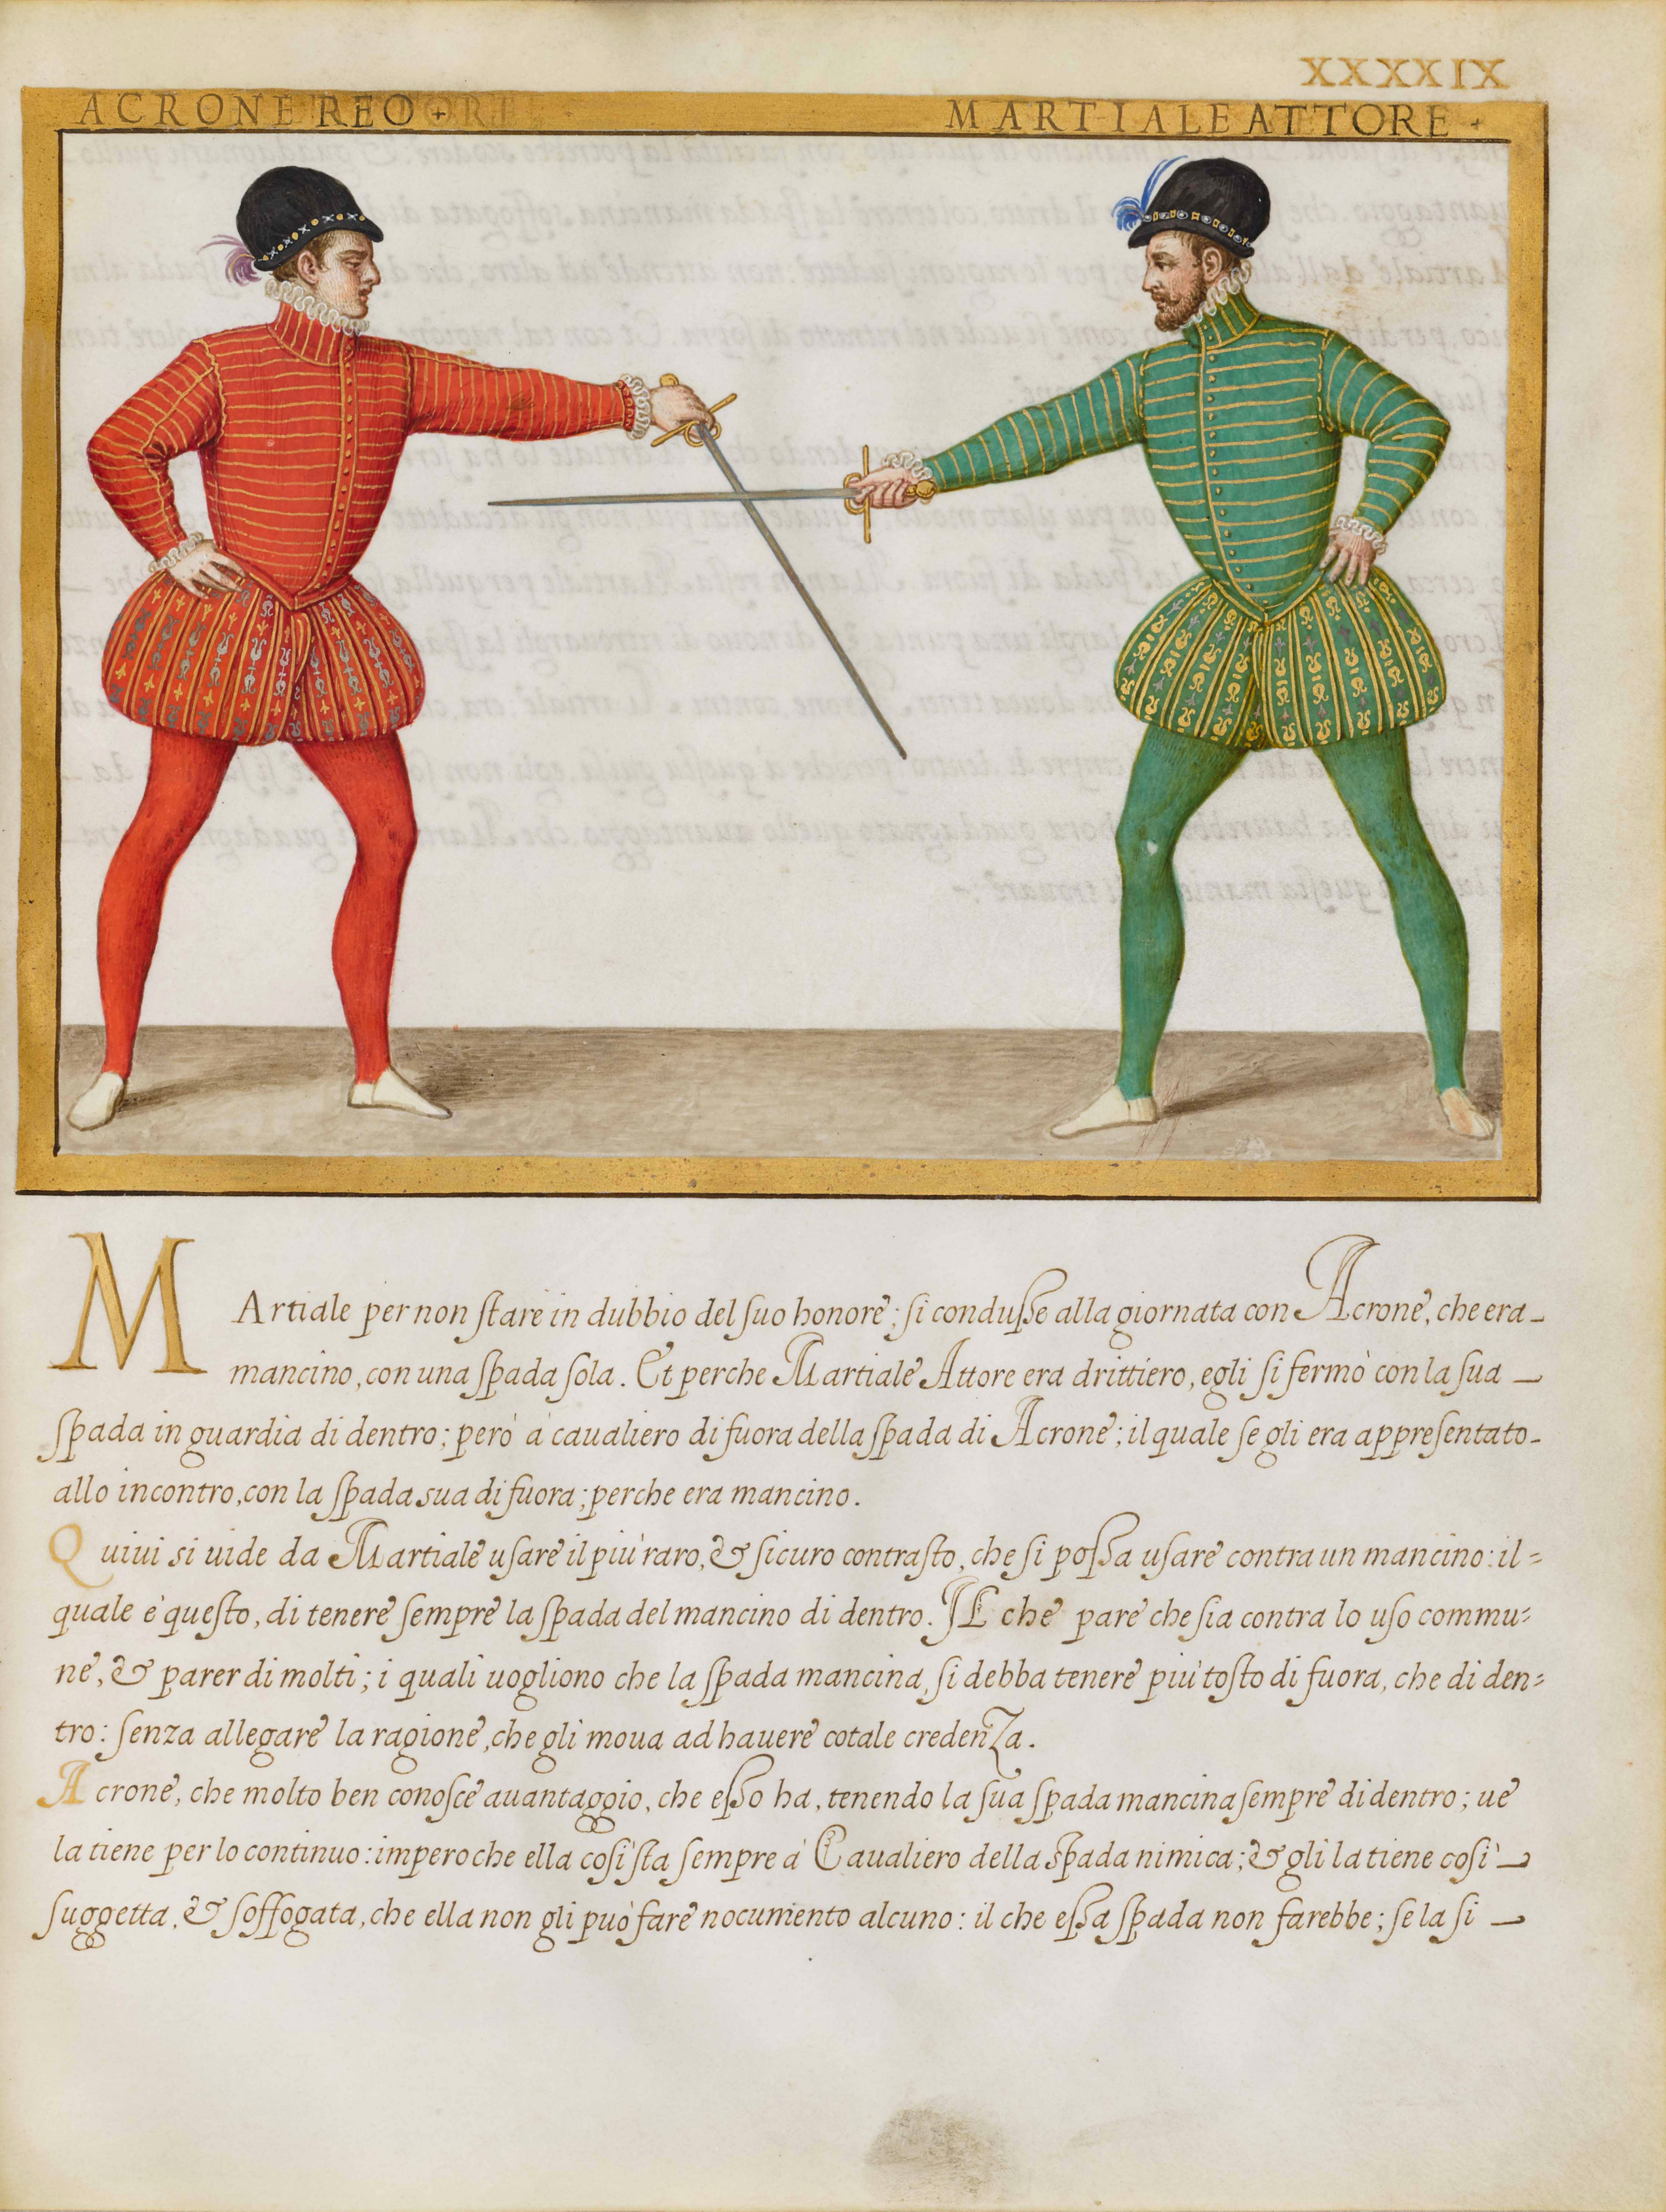 XXXXIX
ACRONE REO +
MARTIALE ATTORE +
MArtiale per non ſtare in dubbio del ſuo honore; ſi conduſse alla giornata con Acrone, che era
mancino, con una ſpada ſola. Et perche Martiale Attore era drittiero, egli ſi fermò con la ſua
ſpada in guardia di dentro; però à caualiero di fuora della ſpada di Acrone; il quale ſe gli era appreſentato
allo incontro, con la ſpada sua di fuora; perche era mancino.
Quiui si uide da Martiale uſare il più raro, & ſicuro contraſto, che ſi poſsa uſare contra un mancino: il=
quale è queſto, di tenere ſempre la ſpada del mancino di dentro. IL che pare che ſia contra lo uſo commu=
ne, & parer di molti; i quali uogliono che la ſpada mancina, ſi debba tenere più toſto di fuora, che di den=
tro: ſenza allegare la ragione, che gli moua ad hauere cotale credenZa.
Acrone, che molto ben conoſce auantaggio, che eſso ha, tenendo la ſua ſpada mancina ſempre di dentro; ue
la tiene per lo continuo: imperoche ella coſi ſta ſempre à Caualiero della Spada nimica; & gli la tiene coſì
ſuggetta, & ſoffogata, che ella non gli può fare nocumento alcuno: il che eſsa ſpada non farebbe; ſe la ſi